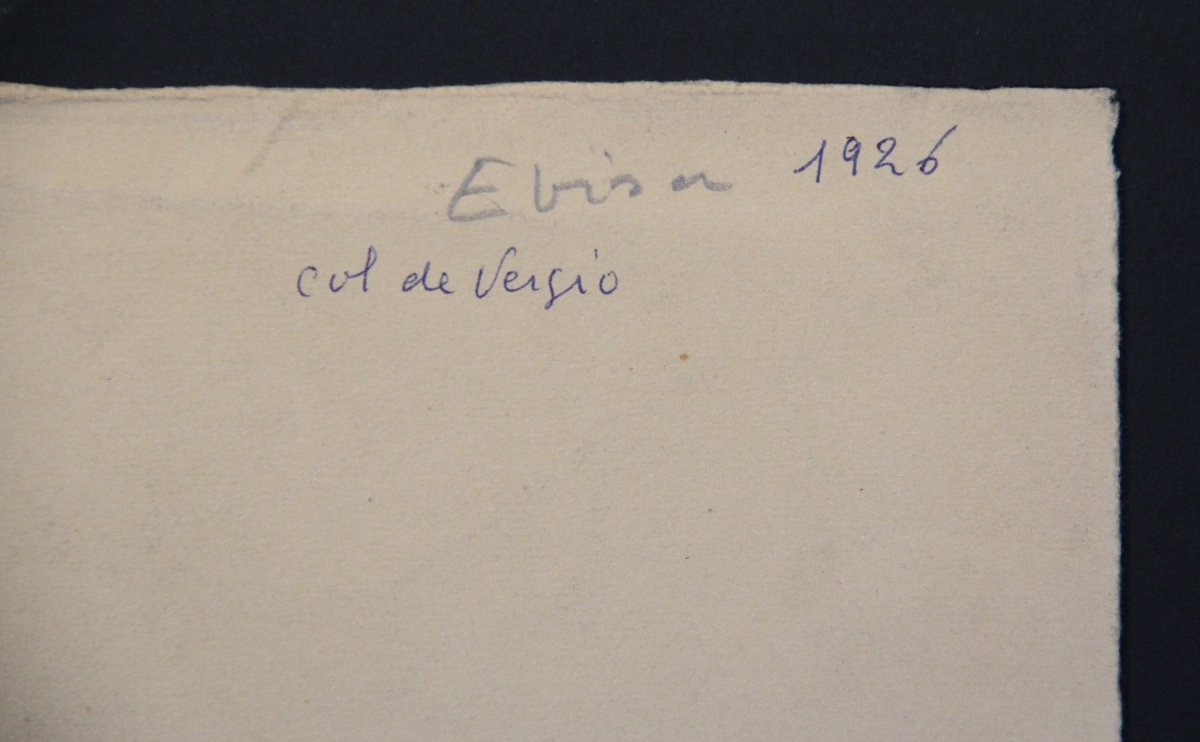 Evisa 1926
col de Vergio